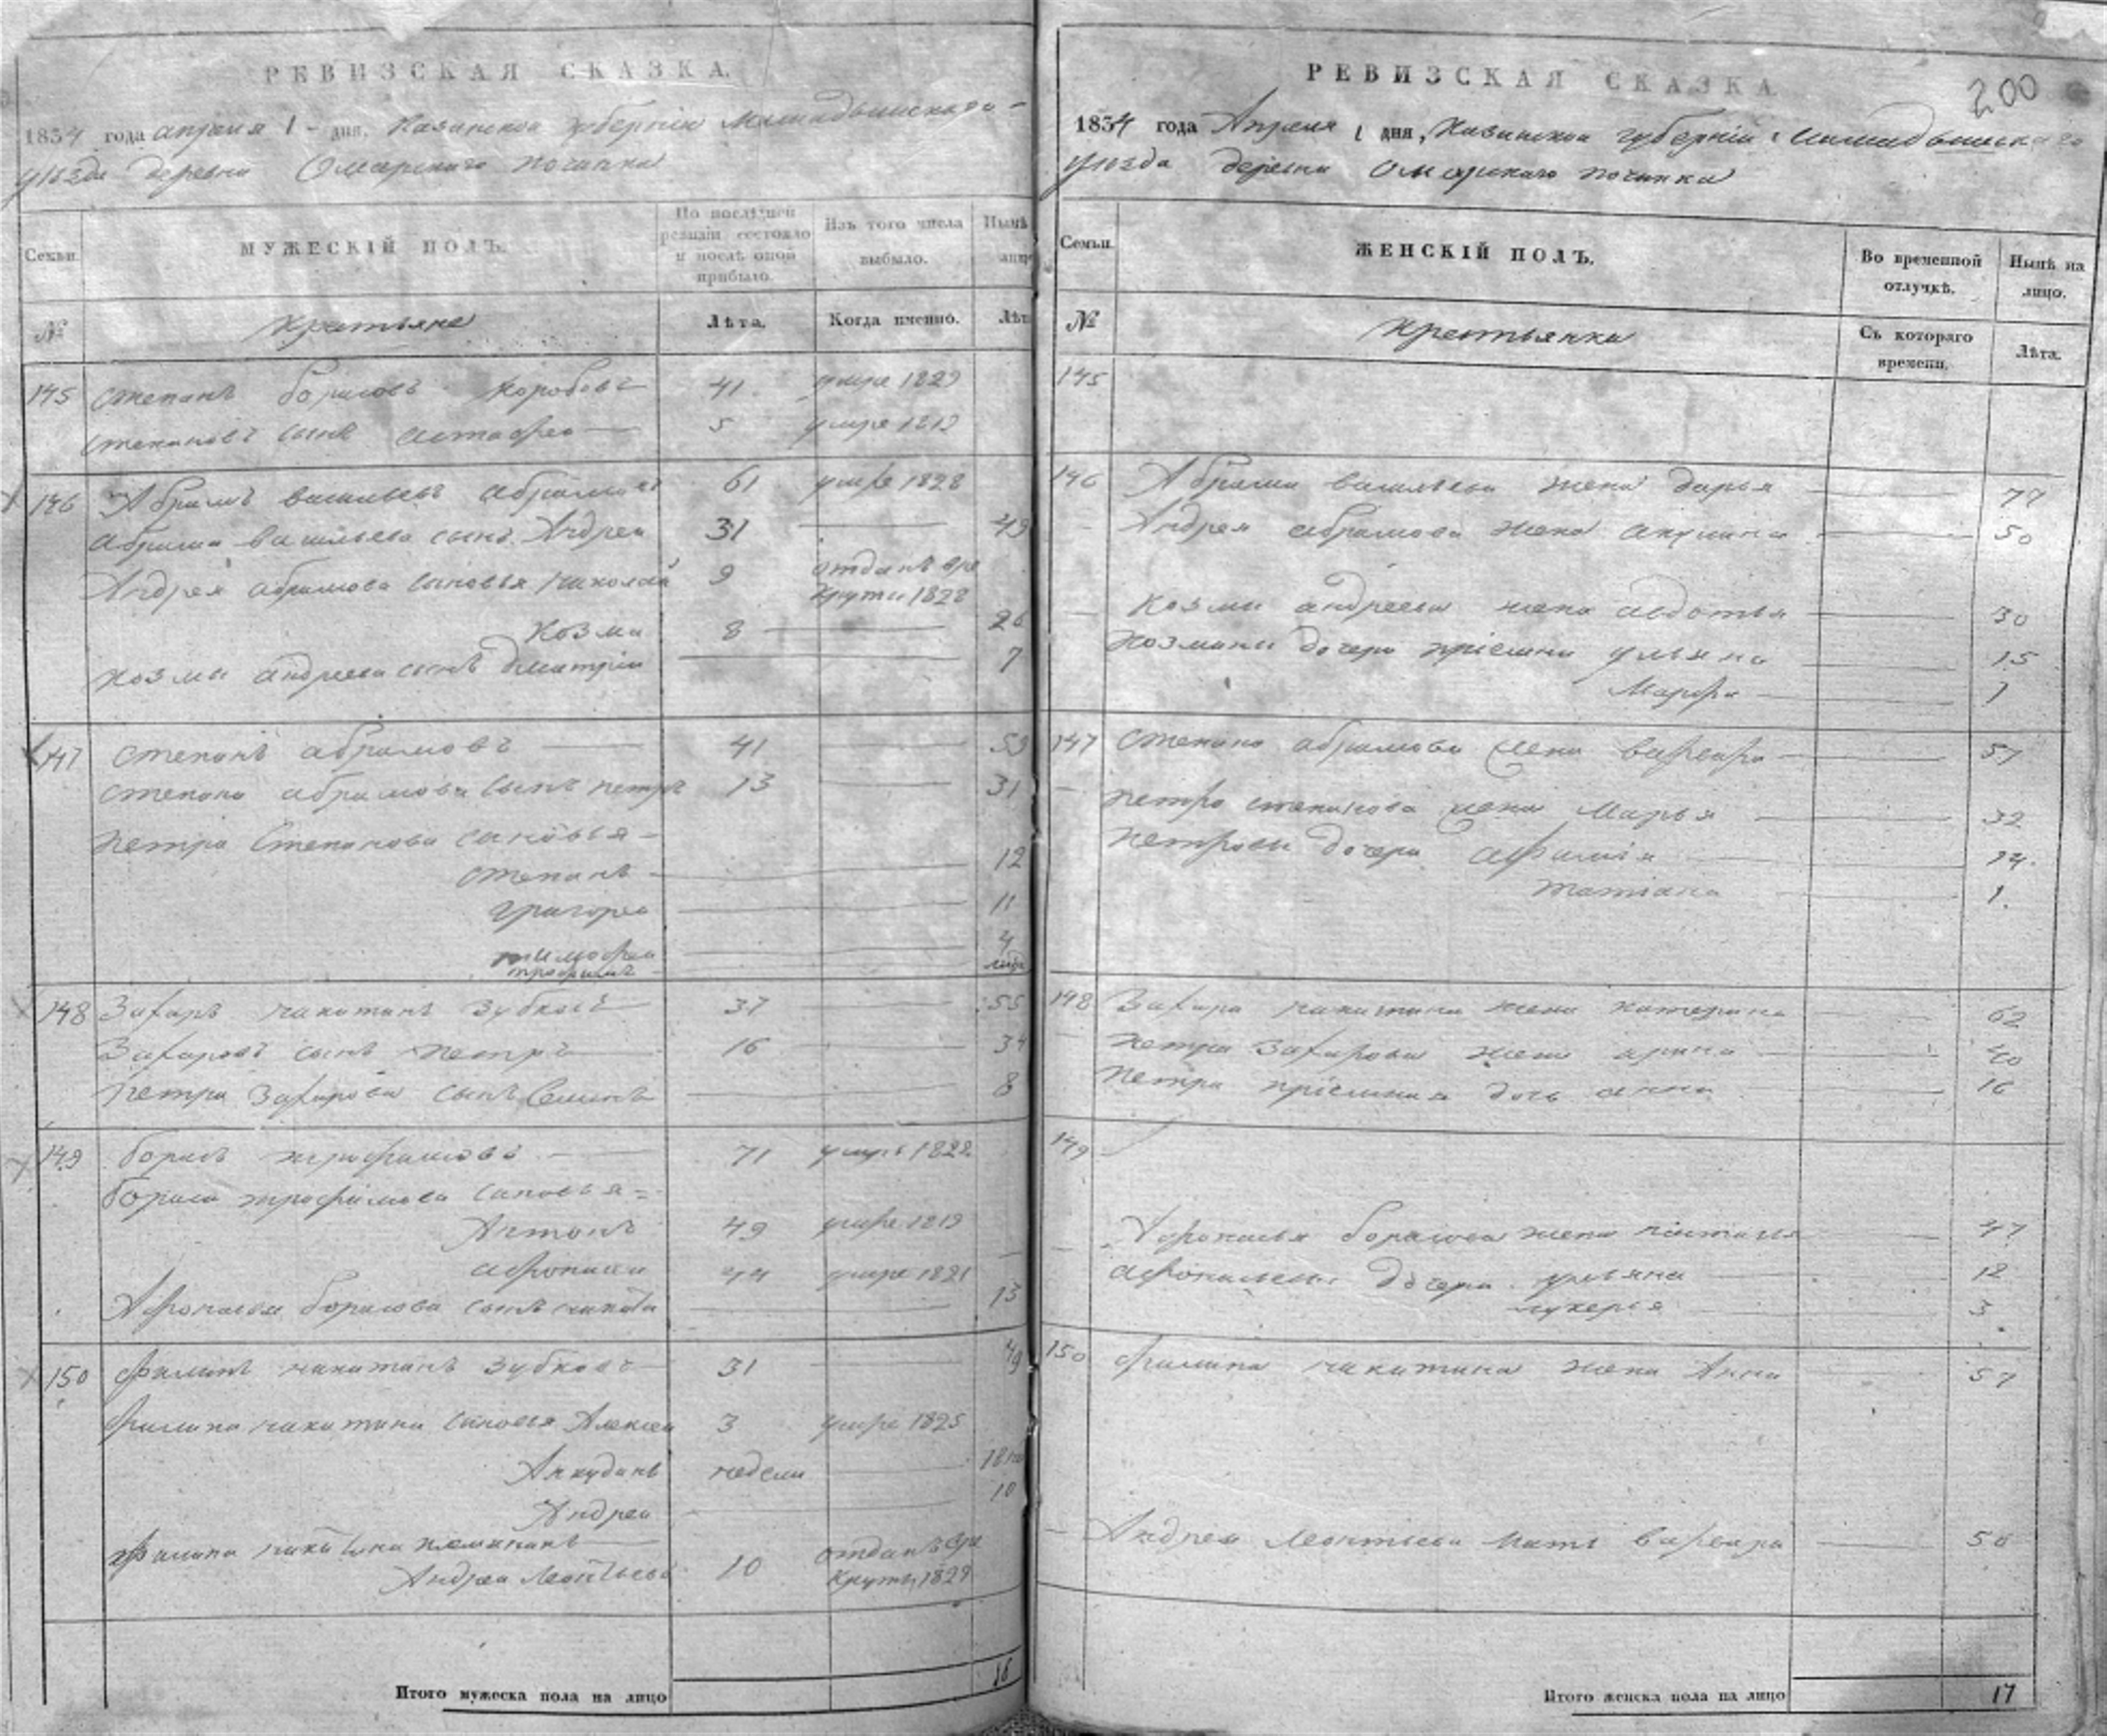 РЕВИЗСКАЯ СКАЗКА.
1834 года апреля 1 дня, Казанской губернии Мамадышскаго
уезда деревни Омарскаго починка
Семьи.
МУЖЕСКІЙ ПОЛЪ.
По послѣдней ревизіи состояло и послѣ оной прибыло.
Изъ того числа выбыло.
Нынѣ на лицо
№
крестьяне
Лѣта.
Когда именно.
Лѣта
145 Степанъ борисовъ коробовъ 41 умре 1829
степановъ сынъ астафеи 5 умре 1819
146 Абрамъ васильевъ абрамовъ 61 умре 1828
абрама васильева сынъ Андреи 31 49
Андрея абрамова сыновья николаи 9 отданъ вре
круты 1828
козма 8 26
козмы андреева сынъ дмитріи 7
147 степанъ абрамовъ 41 59
степана абрамова сынъ петръ 13 31
петра Степанова сыновья
степанъ 12
григореи 11
тимофеи 4
трофимъ
148 Захаръ никитинъ зубковъ 37 55
Захаровъ сынъ петръ 16 34
петра Захарова сынъ Семенъ 8
149 борисъ трофимовъ 71 умре 1822
бориса трофимова сыновья
Антонъ 49 умре 1819
афонасеи 44 умре 1821
Афонасья борисова сынъ никита 13
150 филипъ никитинъ зубковъ 31 49
филипа никитина сыновья Алексеи 3 умре 1825
Анкудинъ недели 18
Андреи 10
филипа никитина племяникъ
Андреи Леонтьевъ 10 отданъ вре
круты 1829
Итого мужеска пола на лицо 16
РЕВИЗСКАЯ СКАЗКА
200
1834 года Апреля 1 дня, Казанской губерніи Мамадышскаго
уезда деревни Омарскаго починка
Семьи.
ЖЕНСКІЙ ПОЛЪ.
Во временной отлучкѣ.
Нынѣ на лицо.
№
крестьянки
Съ котораго времени.
Лѣта.
145
146 Абрама васильева жена дарья 77
Андрея абрамова жена акулина 50
козмы андреева жена авдотья 30
козмины дочери пріемна ульяна 15
Марфа 1
147 степана абрамова жена варвара 57
петра степанова жена Марья 32
петровы дочери афимія 14
татіана 1
148 Захара никитина жена катерина 62
петра Захарова жена арина 40
петра пріемная дочь анна 16
149
Афонасья борисова жена наталья 47
афонасьевы дочери ульяна 12
лукерья 3
150 филипа никитина жена Анна 57
Андрея леонтьева мать варвара 56
Итого женска пола на лицо 17